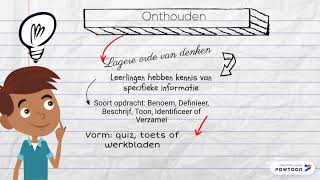 Onthouden
Lagere orde van denken
Leerlingen hebben kennis van
specifieke informatie
Soort opdracht: Benoem, Definieer,
Beschrijf, Toon, Identificeer of
Verzamel
Vorm: quiz, toets of
werkbladen
POWTOON